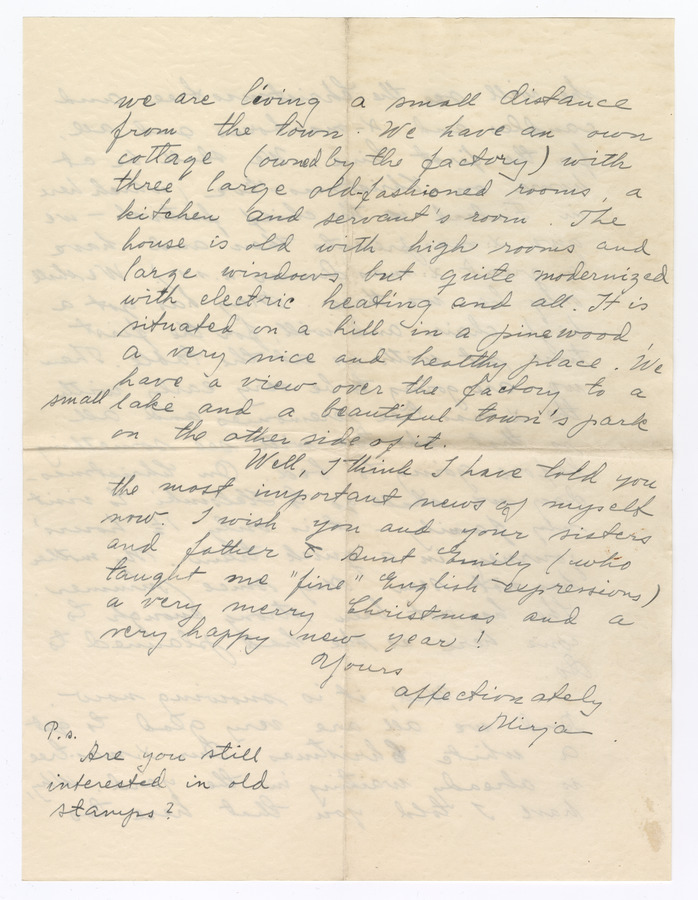 we are living a small distance
from the town. We have an own
cottage (owned by the factory) with
three large old-fashioned rooms, a
kitchen and servant's room. The
house is old with high rooms and
large windows but quite modernized
with electric heating and all. It is
situated on a hill in a pinewood
a very nice and healthy place. We
have a view over the factory to a
small lake and a beautiful town's park
on the other side of it.
Well, I think I have told you
the most important news of myself
now. I wish you and your sisters
and father & aunt Emily (who
taught me "fine" English expressions)
a very merry Christmas and a
very happy new year!
Yours
affectionately
Mirja
P.s.
Are you still
interested in old
stamps?